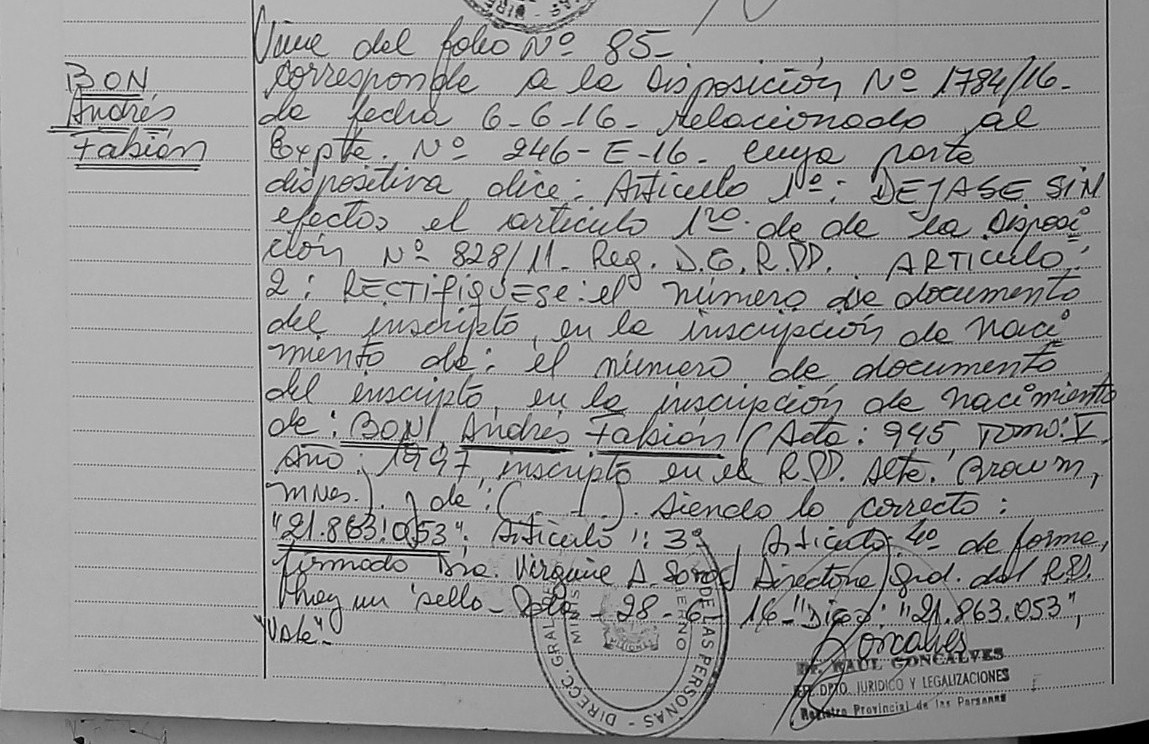 Viene del folio Nº 85-
BON
Andrés
Fabián
corresponde a la Disposición Nº 1784/16-
de fecha 6-6-16- relacionado al
Expte. Nº 246-E-16- cuya parte
dispositiva dice: Artículo 1º: DEJASE SIN
efectos el artículo 1ro. de de la Disposi
ción Nº 828/11- Reg. D.G.R.PP. ARTICULO
2: RECTIFIQUESE: el número de documento
del inscripto, en la inscripción de naci
miento de: el número de documento
del inscripto, en la inscripción de nacimiento
de: BON, Andrés Fabián (Acta: 945, TOMO: V
Año: 1997, inscripto en el R.PP. Alte. Brown,
mnes.) de: (. . .). siendo lo correcto:
"21.863.053". Artículo: 3º Artículo: 4º de forma,
firmado Dra. Directora Gral. del R.P.P.
Hay un sello- - 28-6-16- "Digo: "21.863.053",
"Vale"-
Goncalves
Dr. RAUL GONCALVES
DPTO. JURIDICO Y LEGALIZACIONES
Registro Provincial de las Personas
DIRECC. GRAL. DE LAS PERSONAS